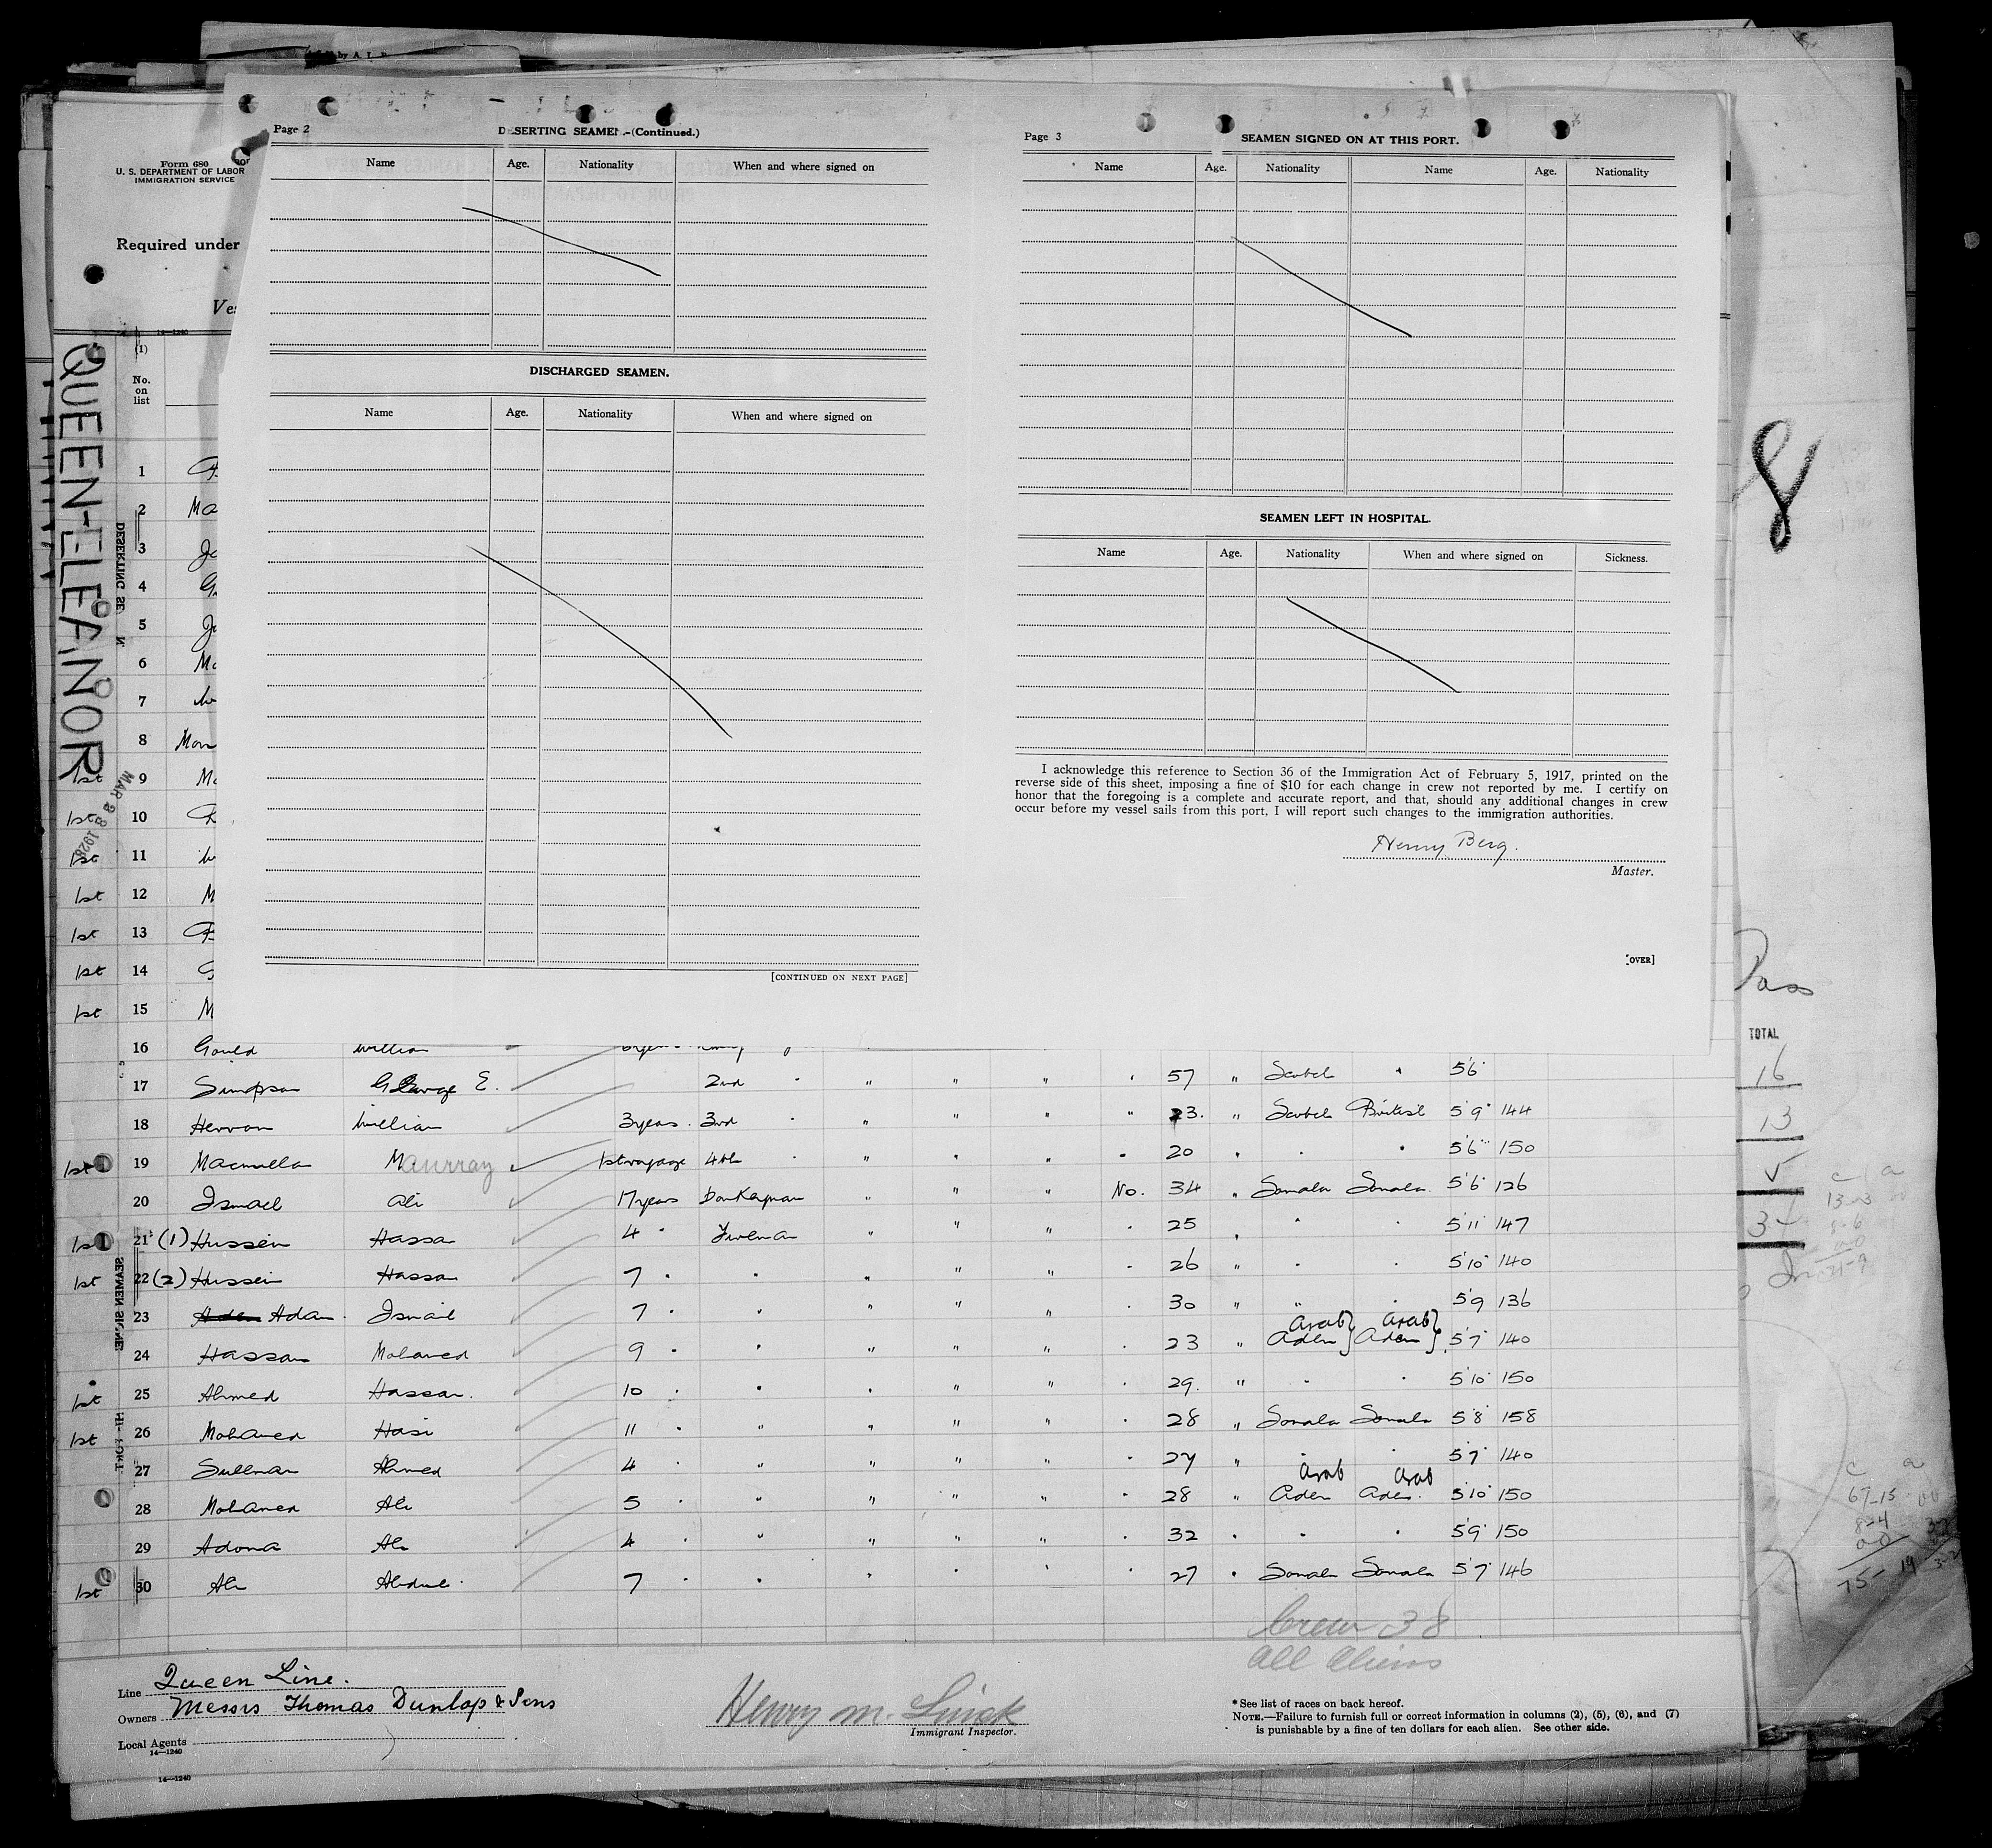 Page 2
DESERTING SEAMEN.—(Continued.)
Name Age. Nationality When and where signed on
DISCHARGED SEAMEN.
Name Age. Nationality When and where signed on
[CONTINUED ON NEXT PAGE]
Page 3
SEAMEN SIGNED ON AT THIS PORT.
Name Age. Nationality Name Age. Nationality
SEAMEN LEFT IN HOSPITAL.
Name Age. Nationality When and where signed on Sickness.
I acknowledge this reference to Section 36 of the Immigration Act of February 5, 1917, printed on the
reverse side of this sheet, imposing a fine of $10 for each change in crew not reported by me. I certify on
honor that the foregoing is a complete and accurate report, and that, should any additional changes in crew
occur before my vessel sails from this port, I will report such changes to the immigration authorities.
Henry Berg.
Master.
[OVER]
Form 680
U. S. DEPARTMENT OF LABOR
IMMIGRATION SERVICE
Required under
Ves
14—1240
QUEEN-ELEANOR
MAR 28 1928
(1)
No.
on
list
1
2 Ma
3 Ja
4 G
5 Ja
6 Ma
7
8 Mon
1st 9 Ma
1st 10
1st 11
1st 12 M
1st 13
1st 14
1st 15 M
16 Gould William
17 Simpson George E. 2nd " " " 57 " Scotch " 5'6"
18 Herron William 3 years. 3rd " " " " 23. " Scotch British 5'9" 144
1st 19 Macmilla Maurray 1st voyage 4th " " " " 20 " " " 5'6" 150
20 Ismael Ali 17 years Donkeyman " " " No. 34 " Somala Somala 5'6" 126
1st 21 (1) Hussein Hassan 4 " Fireman " " " 25 " " " 5'11" 147
1st 22 (2) Hussein Hassan 7 " " " " " " 26 " " " 5'10" 140
23 Aden Adan. Ismail 7 " " " " " " 30 " " " 5'9 136
24 Hassan Mohamed 9 " " " " " " 23 " Arab Aden } Arab Aden } 5'7" 140
1st 25 Ahmed Hassan. 10 " " " " " " 29. " " " 5'10" 150
1st 26 Mohamed Hasi 11 " " " " " " 28 " Somala Somala 5'8" 158
27 Sullman Ahmed 4 " " " " " " 27 " " " 5'7" 140
28 Mohamed Ali 5 " " " " " " 28 " Arab Aden Arab Aden. 5'10" 150
29 Adona Ali 4 " " " " " " 32 " " " 5'9" 150
1st 30 Ali Abdul 7 " " " " " " 27 " Somala Somala 5'7" 146
Crew 38
All Aliens
Line Queen Line.
Owners Messrs Thomas Dunlop & Sons
Local Agents
14—1240
14—1240
Henry M.
Immigrant Inspector.
* See list of races on back hereof.
NOTE.—Failure to furnish full or correct information in columns (2), (5), (6), and (7)
is punishable by a fine of ten dollars for each alien. See other side.
8
Pass
TOTAL
16
13